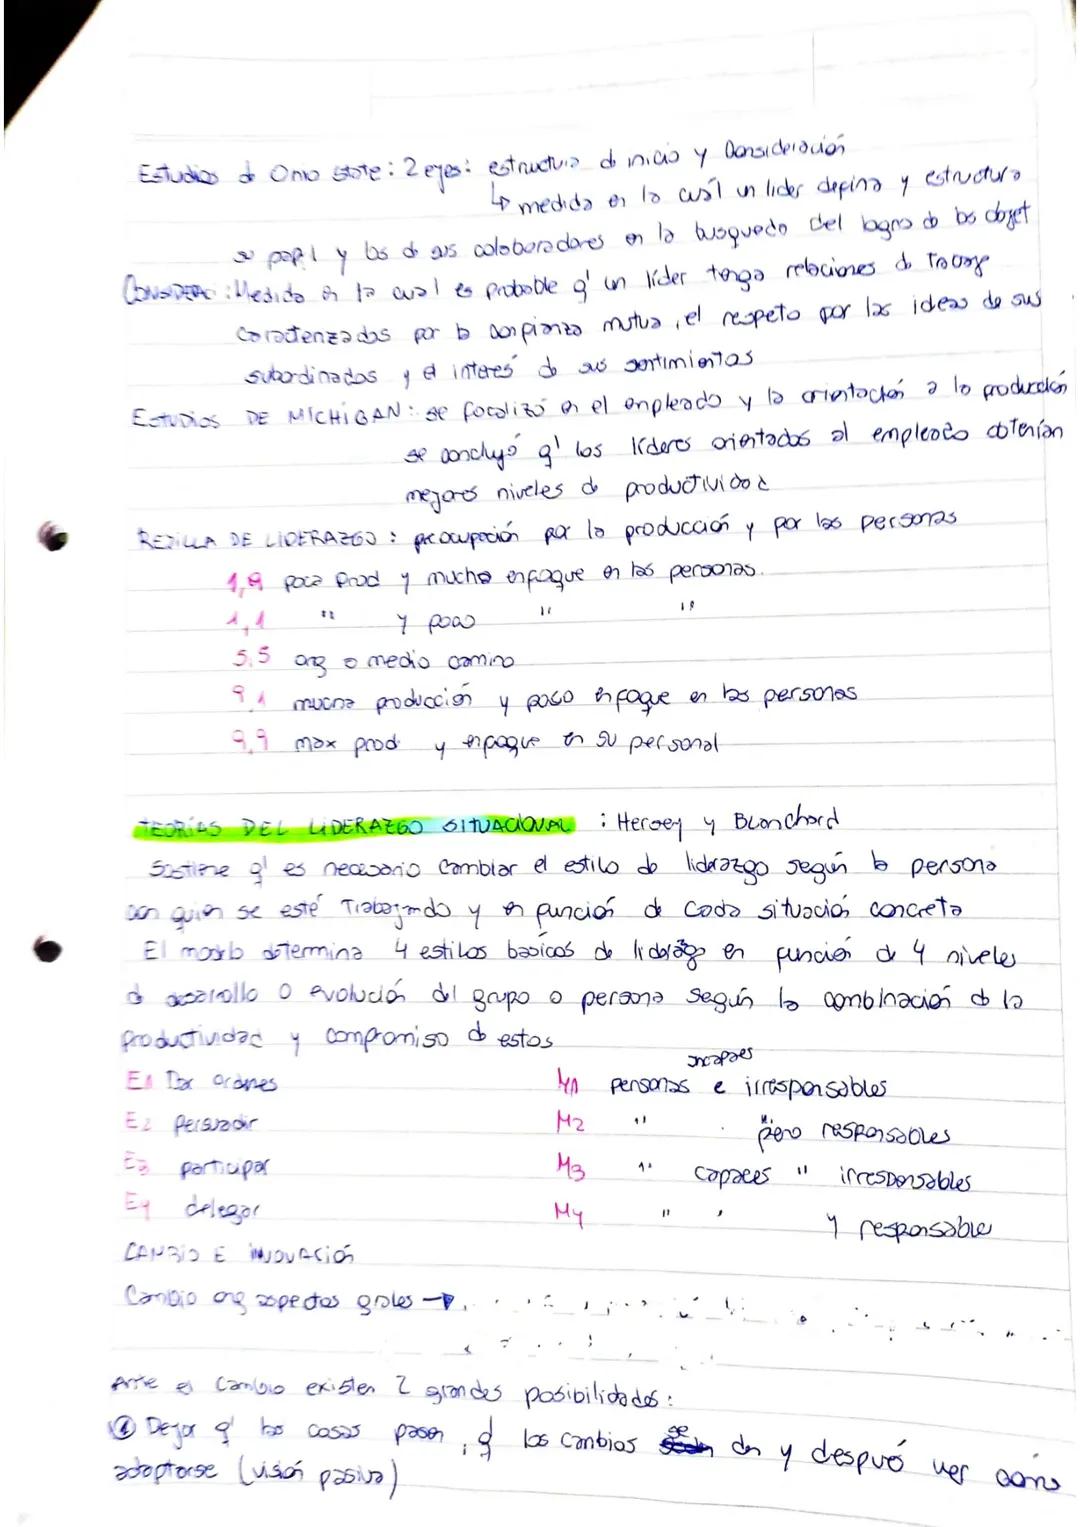 Estudios de Ohio State: 2 ejes: estructura de inicio y Consideración
↳ medida en la cuál un líder defina y estructura
su papel y los de sus colaboradores en la busqueda del logro de los objet
CONSIDERAC: Medida en la cual es probable q' un líder tenga relaciones de trabaje
caracterizadas por la confianza mutua, el respeto por las ideas de sus
subordinados y el interés de sus sentimientos
ESTUDIOS DE MICHIGAN: se focalizó en el empleado y la orientación a la producción
se concluyó q' los líderes orientados al empleado obtenían
mejores niveles de productividad
REJILLA DE LIDERAZGO: preocupación por la producción y por las personas
1,9 poca Prod y mucho enfoque en las personas.
1,1 " y poco " "
5.5 org o medio camino
9,1 mucha producción y poco enfoque en las personas
9,9 max prod. y enfoque en su personal
TEORÍAS DEL LIDERAZGO SITUACIONAL: Hersey y Blanchard
Sostiene q' es necesario cambiar el estilo de liderazgo según la persona
con quien se esté Trabajando y en función de Cada situación concreta
El modelo determina 4 estilos basicos de liderazgo en función de 4 niveles
de desarrollo o evolución del grupo o persona según la combinación de la
productividad y compromiso de estos
incapaces
E1 Dar ordenes M1 personas e irresponsables
E2 Persuadir M2 " " pero responsables
E3 participar M3 " capaces " irresponsables
E4 delegar M4 " " y responsable
CAMBIO E INNOVACIÓN
Cambio org aspectos grales →
Ante el Cambio existen 2 grandes posibilidades:
① Dejar q' las cosas pasen, q' los cambios se den y despué ver como
adaptarse (visión pasiva)